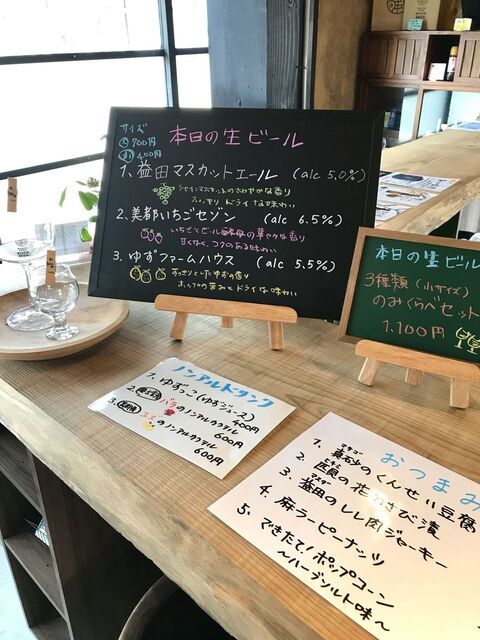 サイズ
大 700円
小 400円
本日の生ビール
1、益田マスカットエール (alc 5.0%)
シャインマスカットのさわやかな香り
スッキリ ドライな味わい
2、美都いちごセゾン (alc 6.5%)
いちごとビール酵母の華やかな香り
甘くなく、コクのある味わい
3、ゆずファームハウス (alc 5.5%)
すっきりとしたゆずの香り
ホップの苦みとドライな味わい
本日の生ビール
3種類 (小サイズ)
のみくらべセット
1,100円
ノンアルドリンク
1、ゆずっこ (ゆずジュース)
400円
2、
バラのノンアルカクテル
600円
3、
ユズのノンアルカクテル
600円
おつまみ
1、真砂のくんせい豆腐
2、匹見の花わさび漬
3、益田のシシ肉ジャーキー
4、麻ラーピーナッツ
5、できたて!ポップコーン
〜ハーブソルト味〜